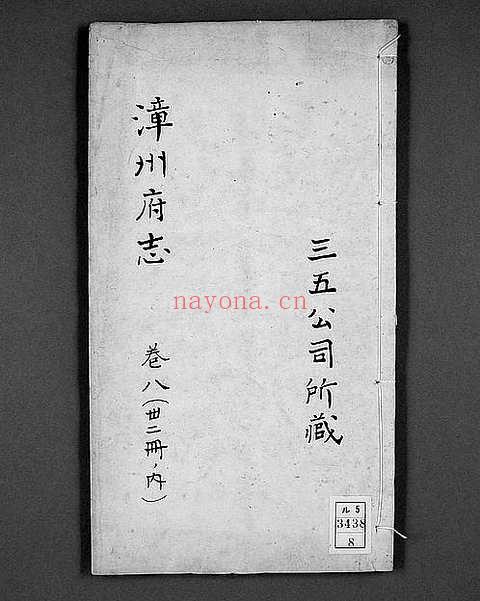 漳州府志
巻八(卅二冊ノ内)
三五公司所藏
nayona.cn
ル5
3438
8